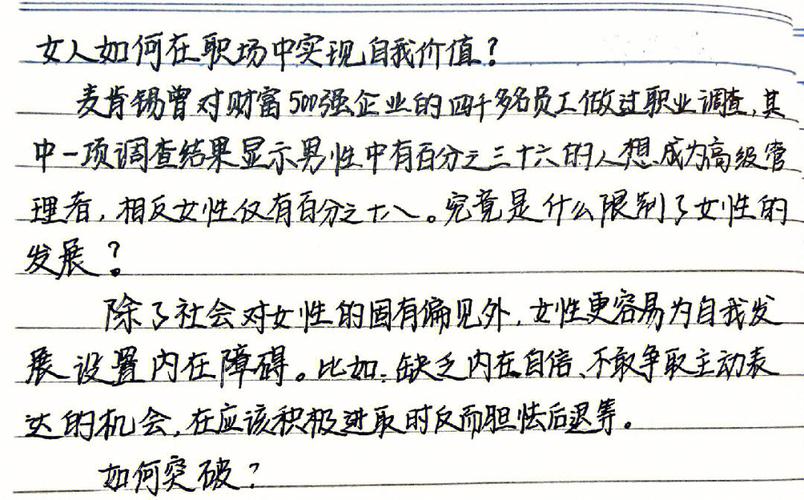 女人如何在职场中实现自我价值？
麦肯锡曾对财富500强企业的四千多名员工做过职业调查,其
中一项调查结果显示男性中有百分之三十六的人想成为高级管
理者，相反女性仅有百分之十八。究竟是什么限制了女性的
发展？
除了社会对女性的固有偏见外,女性更容易为自我发
展设置内在障碍。比如:缺乏内在自信、不敢争取主动表
达的机会,在应该积极进取时反而胆怯后退等。
如何突破？